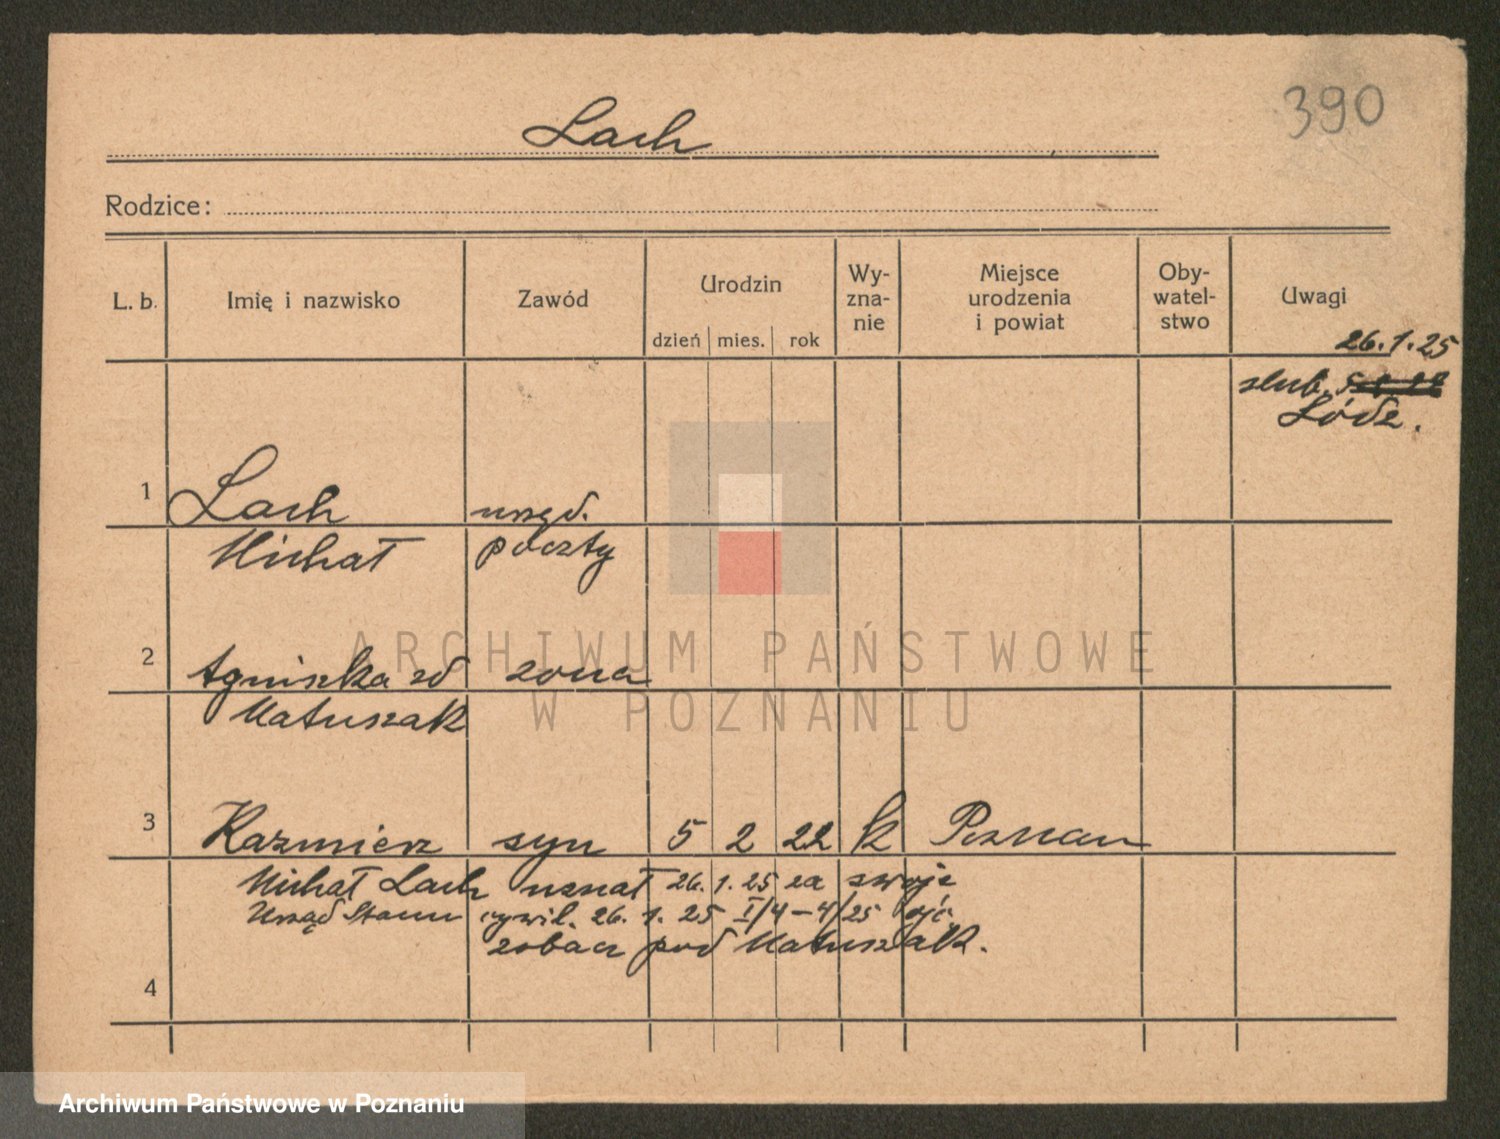 390
Lach
Rodzice:
L. b. Imię i nazwisko Zawód Urodzin Wy-zna-nie Miejsce urodzenia i powiat Oby-watel-stwo Uwagi
dzień mies. rok
26.1.25
slub.
Łódz.
1 Lach urzęd.
Michał poczty
2 Agniszka zd zona
Matuszak
3 Kazmierz syn 5 2 22 k Poznan
Michał Lach uznał 26. 1. 25 za swoje
Urząd Stanu cywil. 26. 1. 25 I/4-4/25
zobacz pod Matuszak.
4
ARCHIWUM PAŃSTWOWE
W POZNANIU
Archiwum Państwowe w Poznaniu